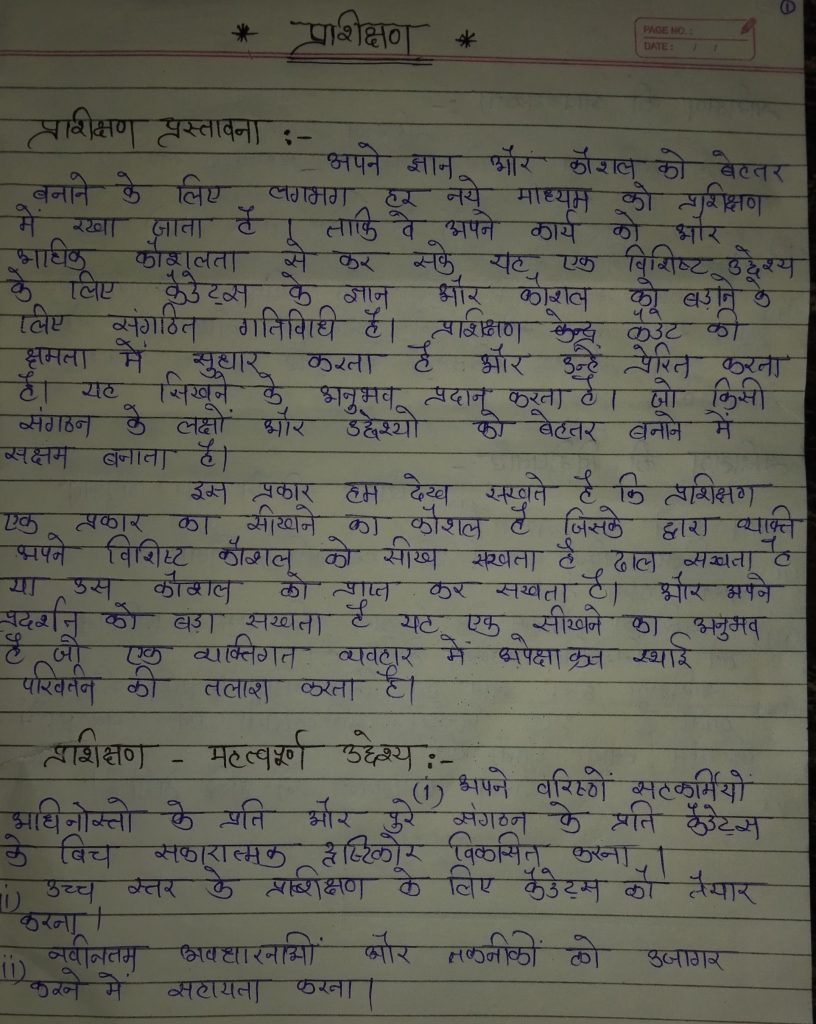 ①
* प्रशिक्षण *
PAGE NO.:
DATE: / /
प्रशिक्षण प्रस्तावना :-
अपने ज्ञान और कौशल को बेहतर
बनाने के लिए लगभग हर नये माध्यम को प्रशिक्षण
में रखा जाता है । ताकि वे अपने कार्य को और
अधिक कौशलता से कर सके यह एक विशिष्ट उद्देश्य
के लिए कैडेट्स के ज्ञान और कौशल को बढ़ाने के
लिए संगठित गतिविधि है। प्रशिक्षण केन्द्र कैडेट की
क्षमता में सुधार करता है और उन्हें प्रेरित करता
है। यह सिखने के अनुभव प्रदान करता है। जो किसी
संगठन के लक्षों और उद्देश्यो को बेहतर बनाने में
सक्षम बनाता है।
इस प्रकार हम देख सखते है कि प्रशिक्षण
एक प्रकार का सीखने का कौशल है जिसके द्वारा व्यक्ति
अपने विशिष्ट कौशल को सीख सखता है ढाल सखता है
या उस कौशल को प्राप्त कर सखता है। और अपने
प्रदर्शन को बड़ा सखता है यह एक सीखने का अनुभव
है जो एक व्यक्तिगत व्यवहार में अपेक्षाकृत स्थाई
परिवर्तन की तलाश करता है।
प्रशिक्षण - महत्वपूर्ण उद्देश्य :-
(i) अपने वरिष्ठों सहकर्मियों
अधिनोस्तो के प्रति और पुरे संगठन के प्रति कैडेट्स
के बिच सकारात्मक दृष्टिकोर विकसित करना ।
i) उच्च स्तर के प्रशिक्षण के लिए कैडेट्स को तैयार
करना ।
ii) नवीनतम अवधारनाओं और तकनीकों को उजागर
करने में सहायता करना ।